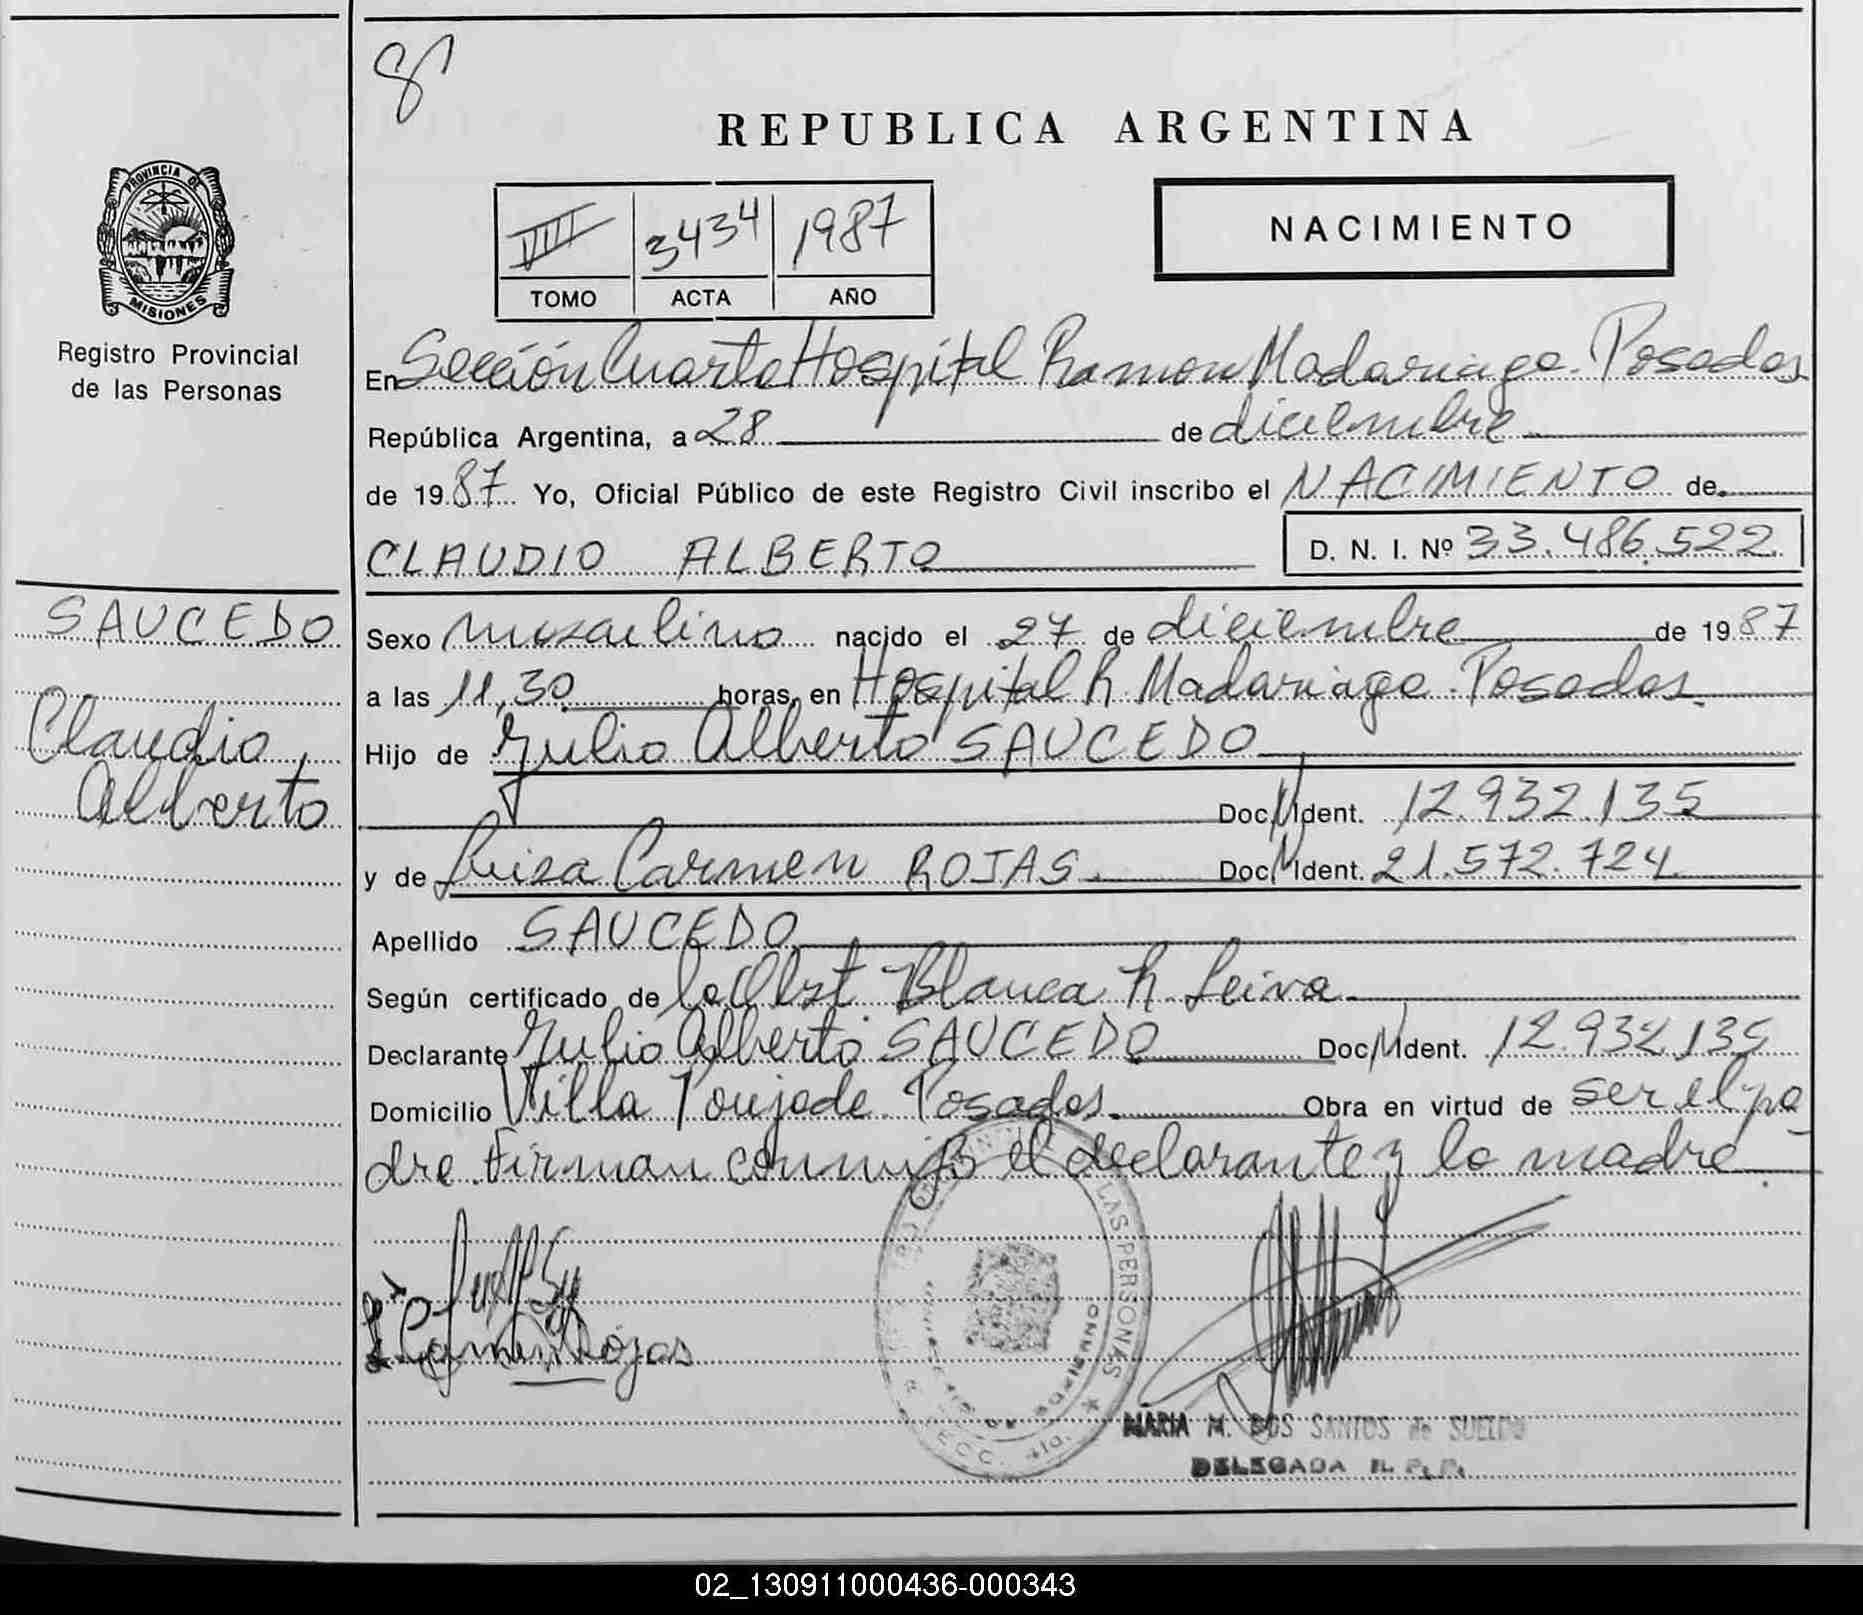 8
REPUBLICA ARGENTINA
PROVINCIA DE
MISIONES
Registro Provincial
de las Personas
VIII 3434 1987
TOMO ACTA AÑO
NACIMIENTO
En Sección Cuarta Hospital Ramon Madariaga. Posadas
República Argentina, a 28 de diciembre
de 1987 Yo, Oficial Público de este Registro Civil inscribo el NACIMIENTO de
CLAUDIO ALBERTO D. N. I. Nº 33.486.522
SAUCEDO
Claudio
Alberto
Sexo masculino nacido el 27 de diciembre de 1987
a las 11,30 horas, en Hospital R. Madariaga. Posadas.
Hijo de Julio Alberto SAUCEDO
Doc. Ident. 12.932.135
y de Luisa Carmen ROJAS. Doc. Ident. 21.572.724
Apellido SAUCEDO
Según certificado de la Obst Blanca R. Leiva.
Declarante Julio Alberto SAUCEDO Doc. Ident. 12.932.135
Domicilio Villa Poujade. Posadas. Obra en virtud de ser el pa
dre. Firman conmigo el declarante y la madre
L. Carmen Rojas
LAS PERSONAS
MARIA M. DOS SANTOS de SUELDO
DELEGADA R. P. P.
02_130911000436-000343